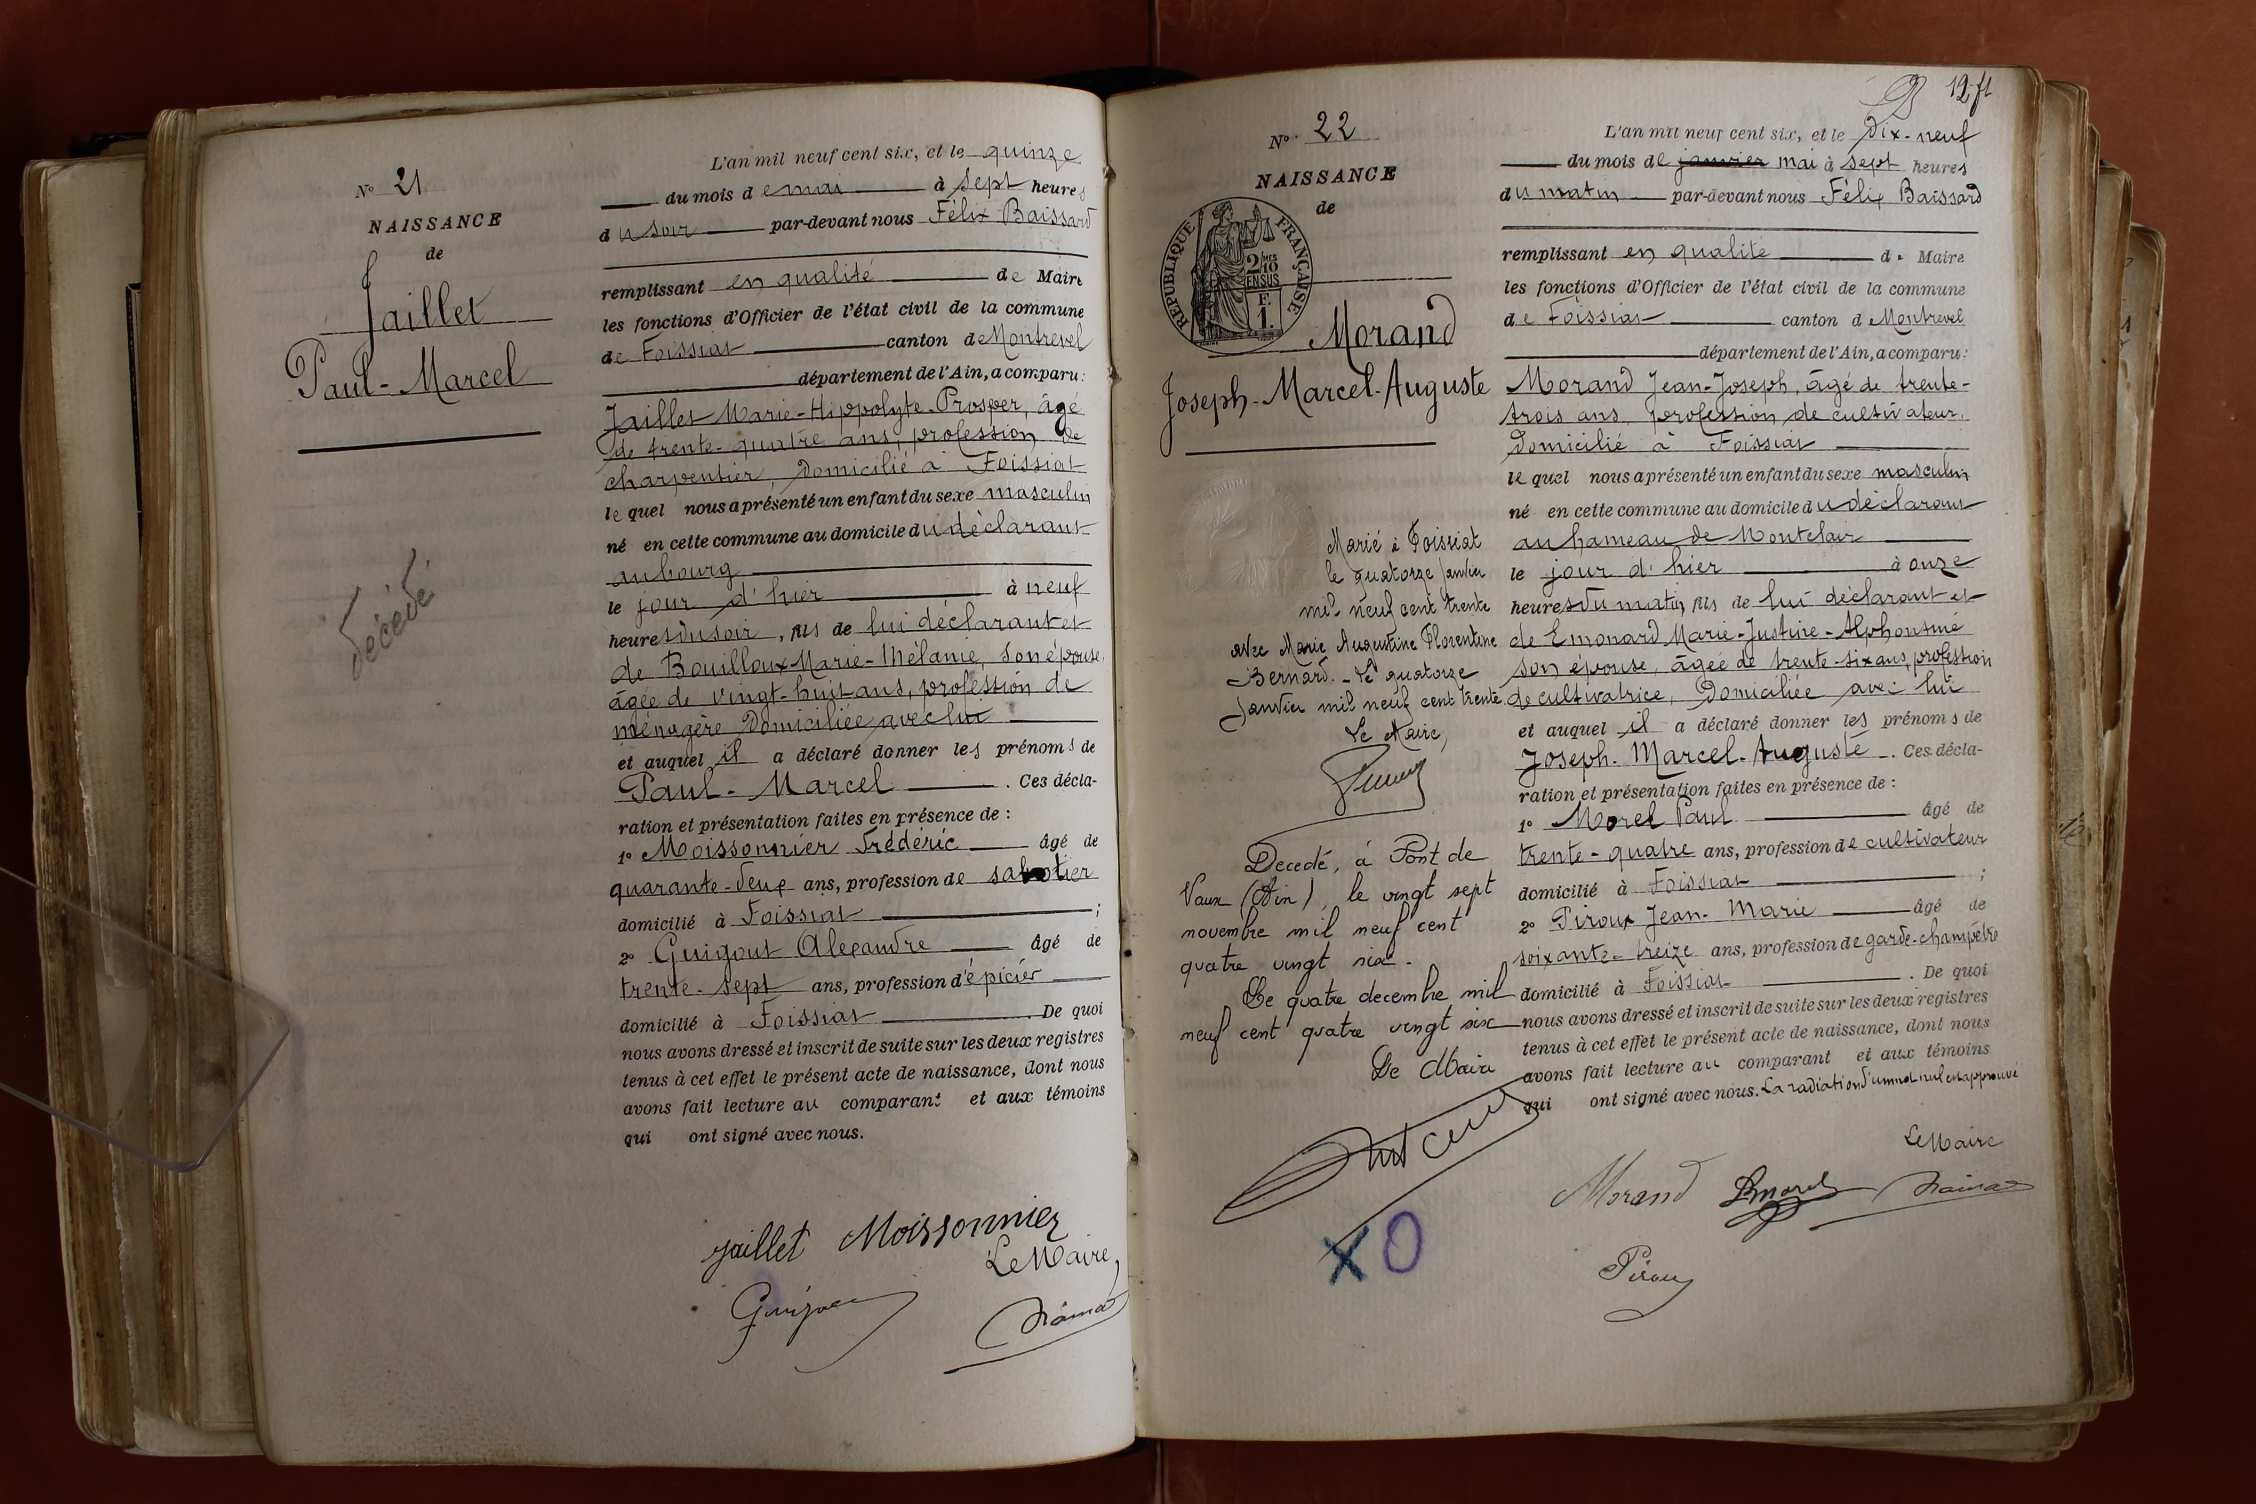 N° 21
NAISSANCE
de
Jaillet
Paul-Marcel
décédé
L'an mil neuf cent six, et le quinze
du mois de mai à sept heures
du soir par-devant nous Félix Baissard
remplissant en qualité de Maire
les fonctions d'Officier de l'état civil de la commune
de Foissiat canton de Montrevel
département de l'Ain, a comparu:
Jaillet Marie-Hippolyte-Prosper, âgé
de trente-quatre ans, profession de
charpentier, domicilié à Foissiat
lequel nous a présenté un enfant du sexe masculin
né en cette commune au domicile du déclarant
au bourg
le jour d'hier à neuf
heures du soir, fils de lui déclarant et
de Bouilloux Marie-Mélanie, son épouse,
âgée de vingt-huit ans, profession de
ménagère domiciliée avec lui
et auquel il a déclaré donner les prénoms de
Paul-Marcel. Ces décla-
ration et présentation faites en présence de :
1° Moissonnier Frédéric âgé de
quarante-deux ans, profession de sabotier
domicilié à Foissiat ;
2° Guigout Alexandre âgé de
trente-sept ans, profession d'épicier
domicilié à Foissiat. De quoi
nous avons dressé et inscrit de suite sur les deux registres
tenus à cet effet le présent acte de naissance, dont nous
avons fait lecture au comparant et aux témoins
qui ont signé avec nous.
Jaillet Moissonnier
Le Maire,
12 f1
N° 22
NAISSANCE
de
REPUBLIQUE FRANÇAISE
2/10 mes
EN SUS
F.
1.
Morand
Joseph-Marcel-Auguste
Marié à Foissiat
le quatorze janvier
mil neuf cent trente
avec Marie Augustine Florentine
Bernard. - Le quatorze
janvier mil neuf cent trente
Le Maire,
Decedé, à Pont de
Vaux (Ain), le vingt sept
novembre mil neuf cent
quatre vingt six.
Le quatre decembre mil
neuf cent quatre vingt six
Le Maire
X O
L'an mil neuf cent six, et le dix-neuf
du mois de janvier mai à sept heures
du matin par-devant nous Félix Baissard
remplissant en qualité de Maire
les fonctions d'Officier de l'état civil de la commune
de Foissiat canton de Montrevel
département de l'Ain, a comparu:
Morand Jean-Joseph, âgé de trente-
trois ans, profession de cultivateur,
domicilié à Foissiat
lequel nous a présenté un enfant du sexe masculin
né en cette commune au domicile du déclarant
au hameau de Montclair
le jour d'hier à onze
heures du matin, fils de lui déclarant et
de Emonard Marie-Justine-Alphonsine
son épouse, âgée de trente-six ans, profession
de cultivatrice, domiciliée avec lui
et auquel il a déclaré donner les prénoms de
Joseph-Marcel-Auguste. Ces décla-
ration et présentation faites en présence de :
1° Morel Paul âgé de
trente-quatre ans, profession de cultivateur
domicilié à Foissiat ;
2° Piroux Jean-Marie âgé de
soixante-treize ans, profession de garde-champêtre
domicilié à Foissiat. De quoi
nous avons dressé et inscrit de suite sur les deux registres
tenus à cet effet le présent acte de naissance, dont nous
avons fait lecture au comparant et aux témoins
qui ont signé avec nous. La radiation d'un mot nul est approuvé
Le Maire
Morand
Piroux